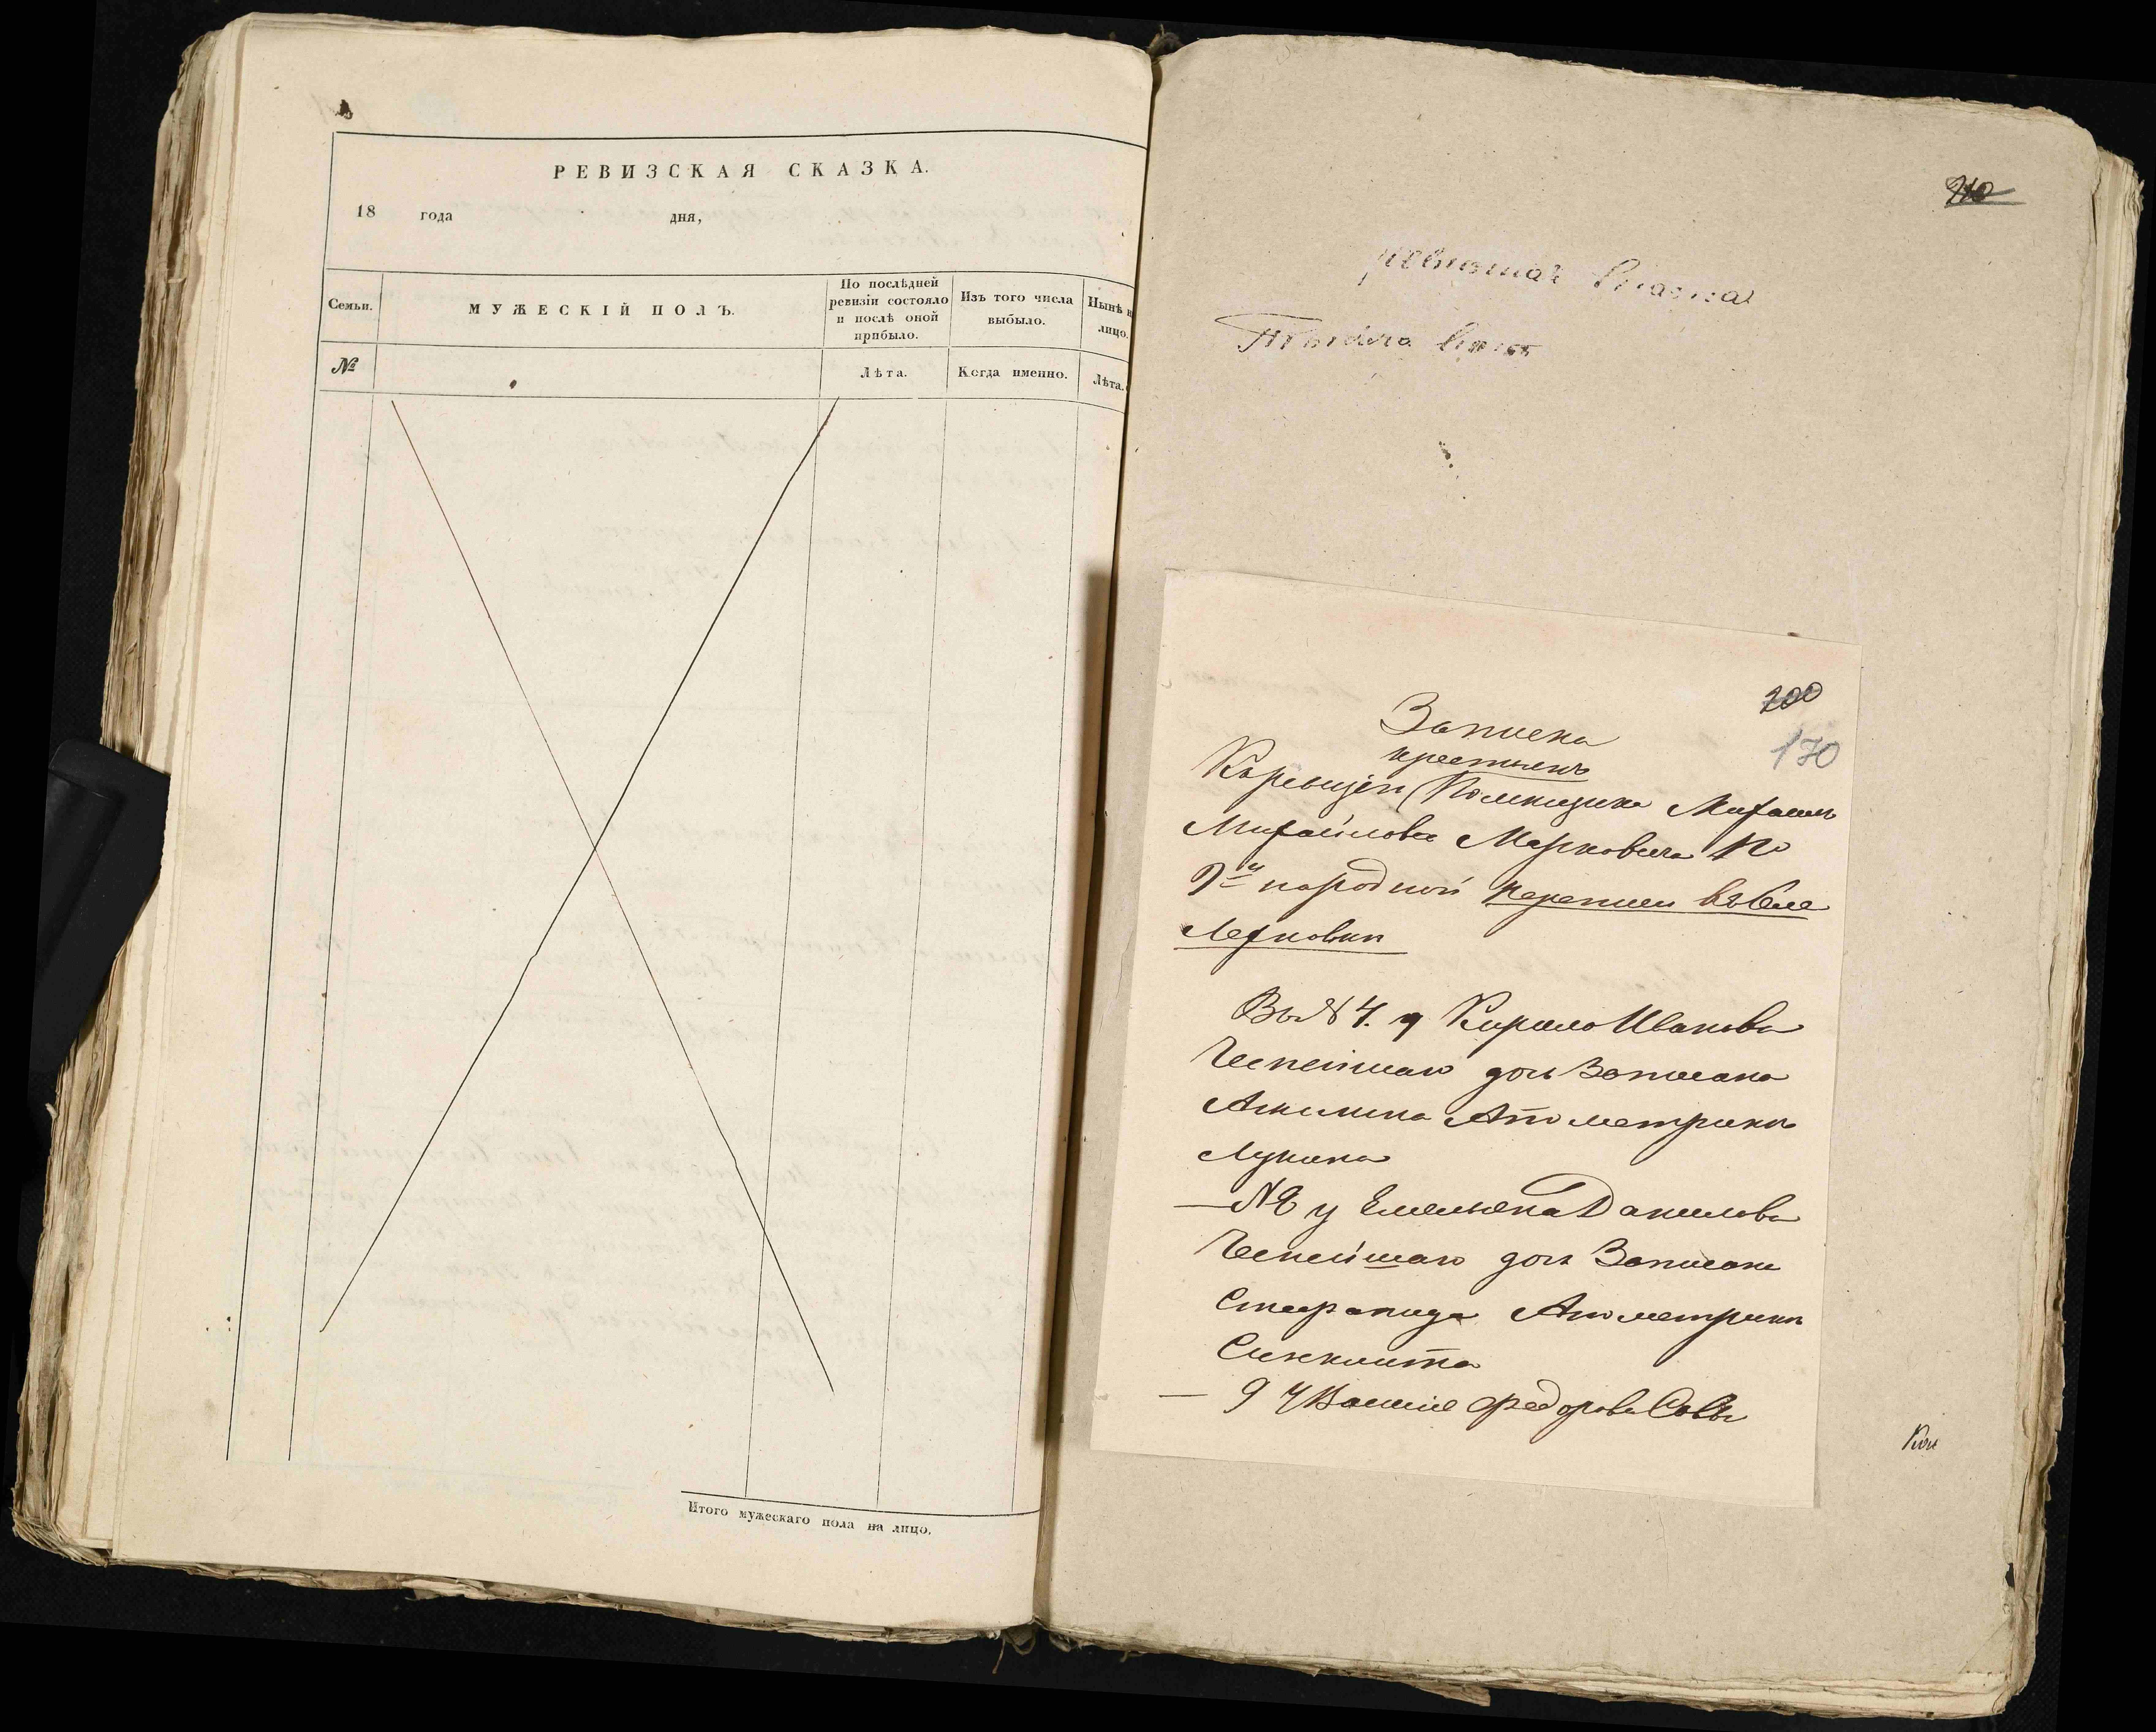 РЕВИЗСКАЯ СКАЗКА.
18 года дня,
Семьи.
МУЖЕСКІЙ ПОЛЪ.
По послѣдней
ревизіи состояло
и послѣ оной
прибыло.
Изъ того числа
выбыло.
Нынѣ н
лицо.
№
Лѣта.
Когда именно.
Лѣта.
Итого мужескаго пола на лицо.
210
200
170
Записка
крестьянъ
Помещика
Михайлова Марковича по
9й народной переписи въ селе
Въ № 4. у Кирило Иванова
дочь Записана
Акилина А по метрики
Лукина
— № 8 у Емельяна Данилова
дочь Записана
А по метрики
Синклита
— 9 У Василіе Федорова Совы